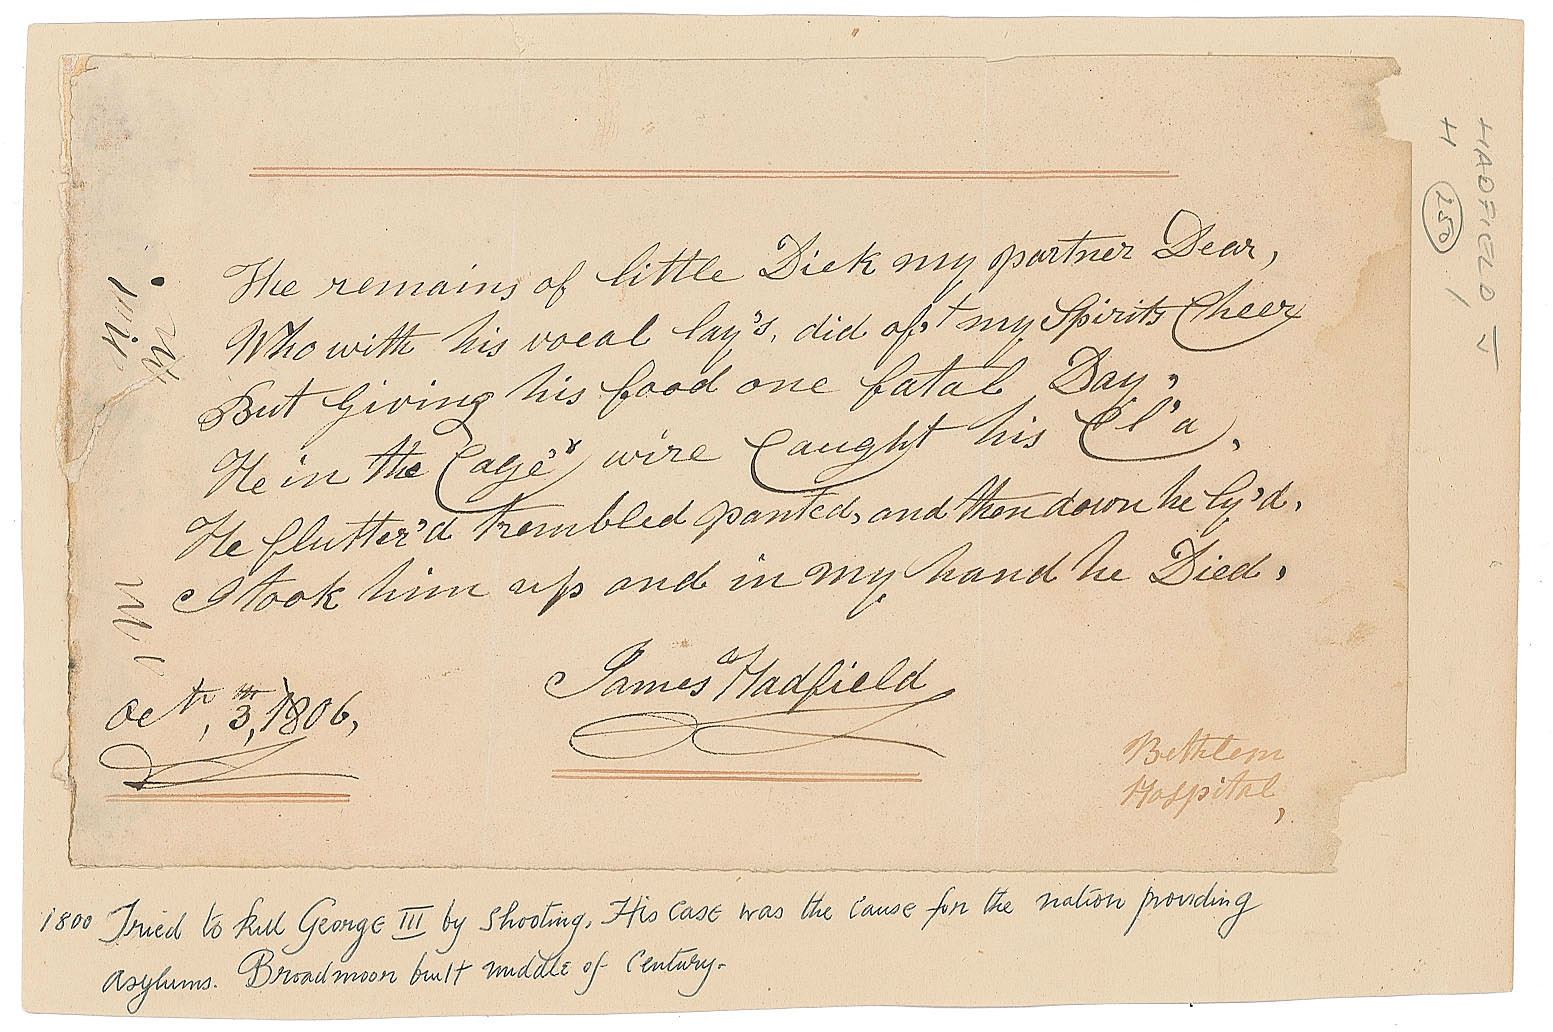 The remains of little Dick my partner Dear,
Who with his vocal lay's, did oft my Spirits Cheer
But Giving his food one fatal Day,
He in the Cage's wire Caught his Cl'a,
He flutter'd trembled panted, and then down he ly'd,
I took him up and in my hand he Died,
James Hadfield
Oct, 3, 1806,
Bethlem
Hospital,
1800 Tried to kill George III by shooting. His case was the cause for the nation providing
asylums. Broadmoor built middle of century.
HADFIELD J
H 250